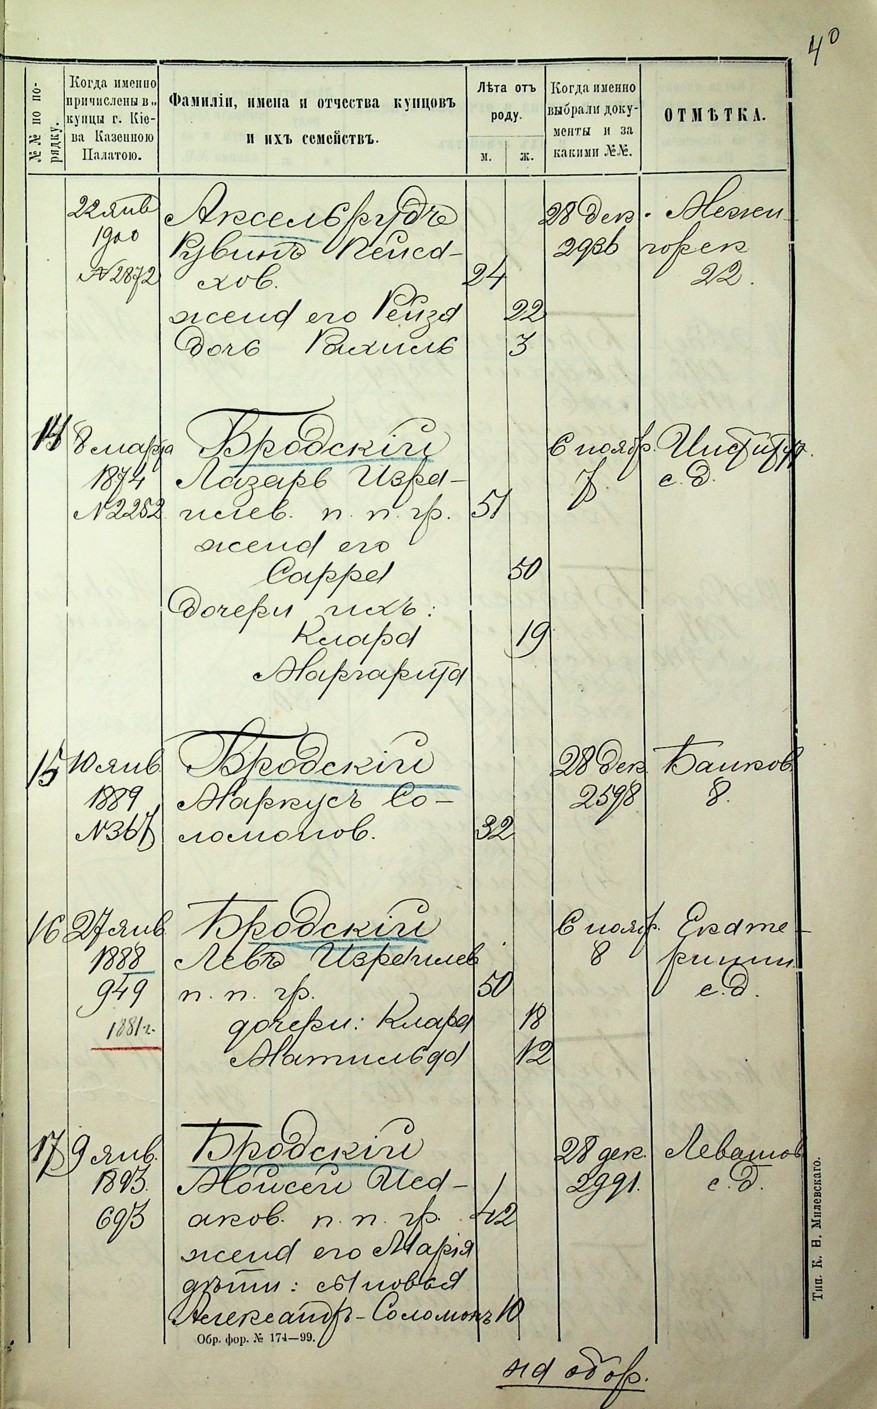 40
№№ по по-
рядку.
Когда именно
причислены въ
купцы г. Кіе-
ва Казенною
Палатою.
Фамиліи, имена и отчества купцовъ
и ихъ семействъ.
Лѣта отъ
роду.
м.
ж.
Когда именно
выбрали доку-
менты и за
какими №№.
ОТМѢТКА.
22 янв
1900
№ 2872
Аксельрудъ
Рувинъ Пейса-
хов. 24
жена его Рейза 22
Дочь Рахиль 3
28 дек.
2936
Межи-
горск
22.
14
8 марта
1874
№ 2252
Бродскій
Лазарь Изра-
илев. п. п. гр. 51
жена его
Сарра 50
Дочери ихъ:
Клара 19
Маргарита
6 нояб.
7
Институт.
с. д.
15
10 янв.
1889
№ 367
Бродскій
Маркусъ Со-
ломонов. 32
28 дек.
2598
Банков.
8.
16
27 янв.
1888
949
1881 г.
Бродскій
Левъ Израилев
п. п. гр. 50
дочери: Клара 18
Матильда 12
6 нояб.
8
Екате-
ринин.
с. д.
17
9 янв.
1893.
693
Бродскій
Мойсей Иса-
аков. п. п. гр. 42
жена его Марія
дѣти: сыновья
Александръ-Соломонъ 10
28 дек.
2991.
Левашов
с. д.
Обр. фор. № 174—99.
на обор.
Тип. К. Н. Милевскаго.